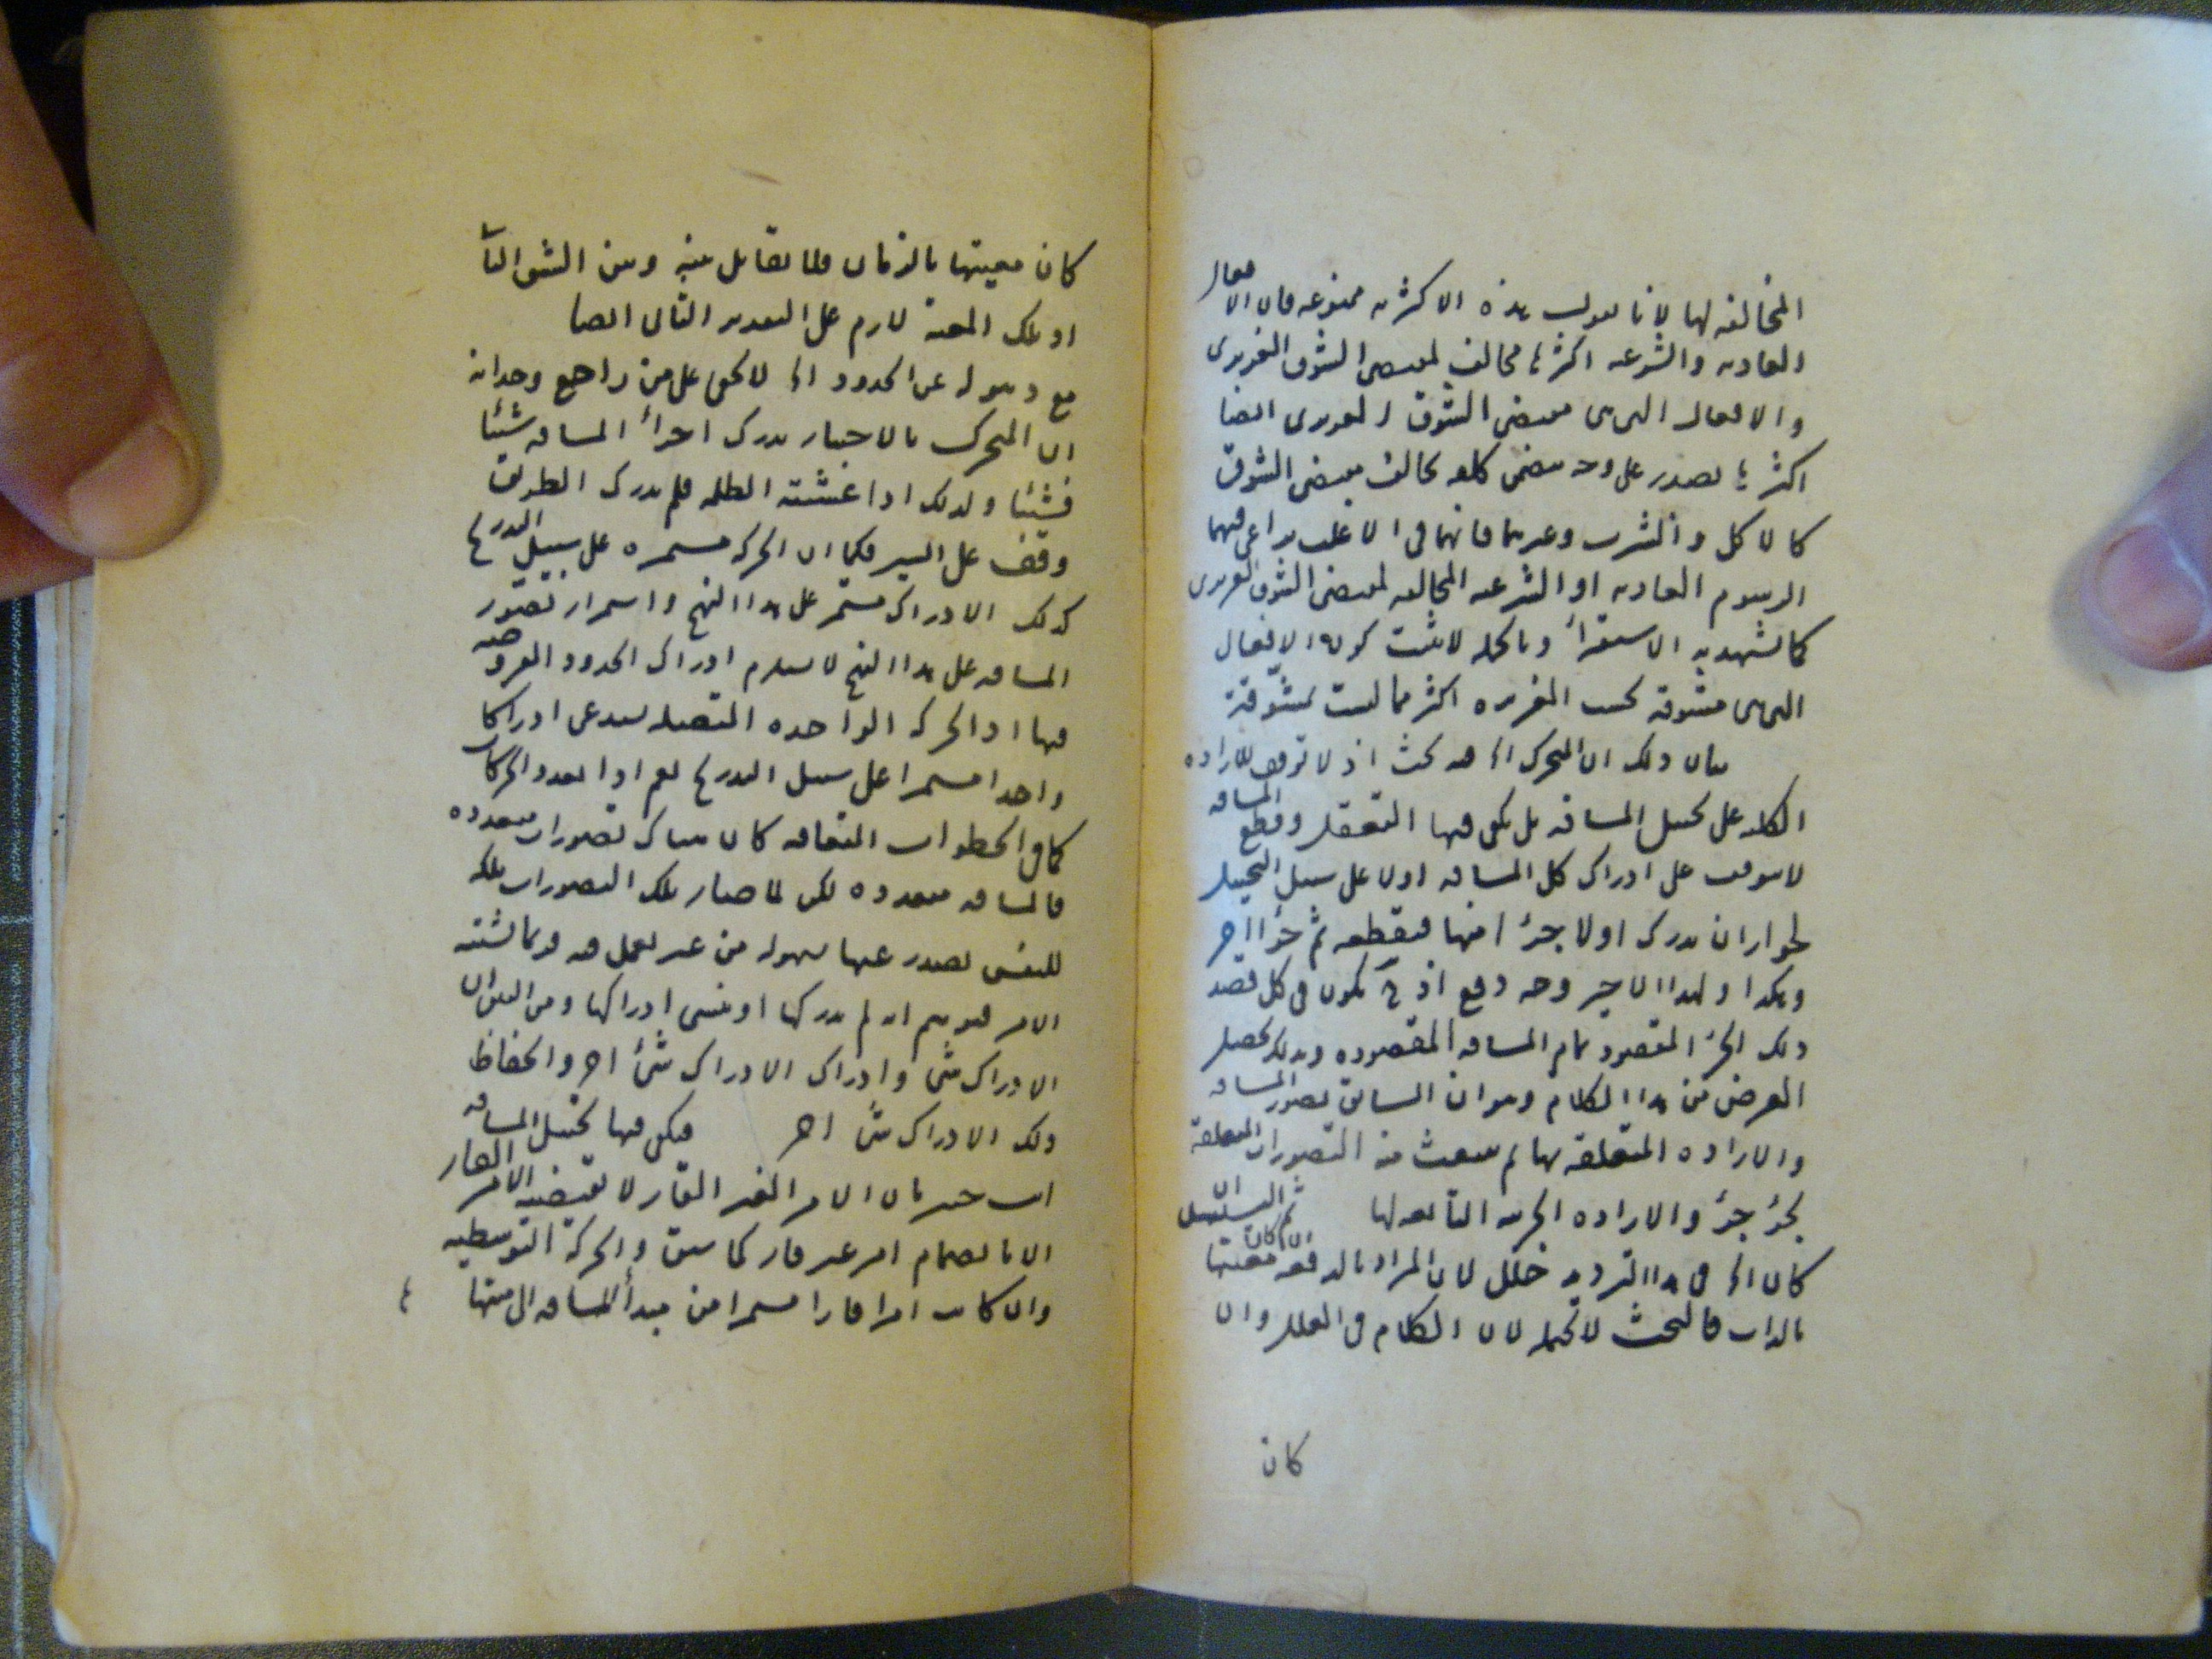 المخالفه لها لانا نقول هذه الاكثريه ممنوعه فان الافعال
العاديه والشرعيه اكثرها مخالف لمقتضى الشوق الغريزى
والافعال التى هى مقتضى الشوق الغريزى ايضا
اكثرها يصدر على وجه يخالف مقتضى الشوق
كالاكل والشرب وغيرهما فانهما فى الاغلب يراعى فيهما
الرسوم العاديه او الشرعيه المخالفه لمقتضى الشوق الغريزى
كما يشهد به الاستقرأ وبالجمله لا يثبت كون الافعال
التى هى مشوقة بحسب الغريزه اكثر مما ليست بمشوقة
بيان ذلك ان المتحرك الخ فيه بحث اذ لا توقف للاراده
الكليه على تخيل المسافه بل يكفى فيها التعقل وقطع المسافه
لا يتوقف على ادراك كل المسافه اولا على سبيل التخيل
لجواز ان يدرك اولا جزءا منها فيقطعه ثم جزءا اخر
وهكذا ولهذا الاخير وجه دفع اذ ح يكون فى كل قصد
ذلك الجزء المقصود تمام المسافه المقصوده وبذلك يحصل
الغرض من هذا الكلام وهو ان السابق تصور المسافه
والاراده المتعلقه بها ثم ينبعث منه التصورات المتعلقة
بجزء جزء والاراده الجزئيه التابعه لها ثم ان السبيل ان
كان الخ فى هذا الترديد خلل لان المراد بالدفعه ان كان معيتها
بالذات فالبحث لا يحتمله لان الكلام فى العلل وان
كان
كان معيتها بالزمان فلا تقابل بينه وبين الشق الثانى
اذ تلك المعية لازم على التقدير الثانى ايضا
مع ذهوله عن الحدود الخ لا يخفى على من راجع وجدانه
ان المتحرك بالاختيار يدرك اجزأ المسافه شيئا
فشيئا ولذلك اذا غشيته الظلمه فلم يدرك الطريق
وقف على السير فكما ان الحركه مستمره على سبيل التدرج
كذلك الادراك مستمر على هذا النهج واستمرار تصور
المسافه على هذا النهج لا يستلزم ادراك الحدود المفروضه
فيها اذ الحركه الواحده المتصله يستدعى ادراكا
واحدا مستمرا على سبيل التدرج نعم اذا تعدد الحركات
كما فى الخطوات المتعاقبه كان هناك تصورات متعدده
فالمسافه متعدده لكن لما صار تلك التصورات ملكه
للنفس يصدر عنها بسهوله من غير تعمل فيه وبما يشتبه
الامر فيوهم انه لم يدركها او ينسى ادراكها ومن البين ان
الادراك شئ وادراك الادراك شئ اخر وانحفاظ
ذلك الادراك شئ اخر فيكفى فيها تخيل المسافه
اب خبير بان الامر الغير القار لا يقتضيه الامر القار
الا بانضمام امر غير قار كما سبق والحركة التوسطيه
وان كانت امرا قارا مستمرا من مبدأ المسافه الى منتها